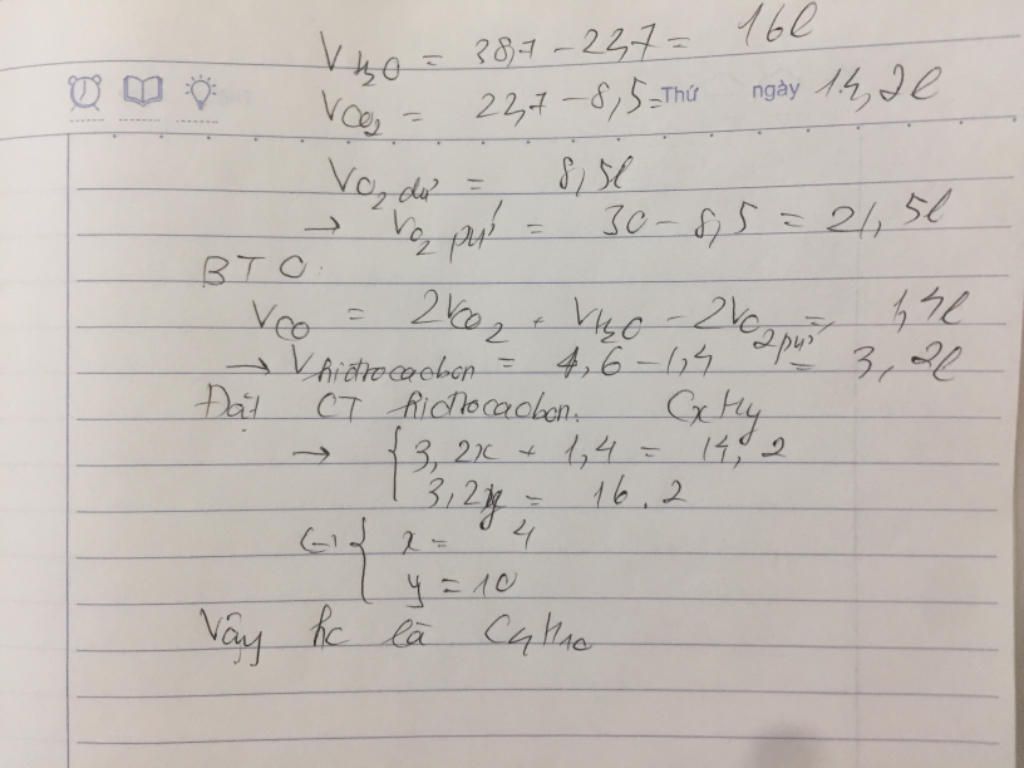 V H2O = 38,7 - 22,7 = 16l
Thứ ngày
V CO2 = 22,7 - 8,5 = 14,2l
V O2 dư = 8,5l
→ V O2 pư = 30 - 8,5 = 21,5l
BTO:
V CO = 2V CO2 + V H2O - 2V O2 pư = 1,4l
→ V hiđrocacbon = 4,6 - 1,4 = 3,2l
Đặt CT hiđrocacbon: CxHy
→ { 3,2x + 1,4 = 14,2
3,2y = 16.2
(-) { x = 4
y = 10
Vậy hc là C4H10